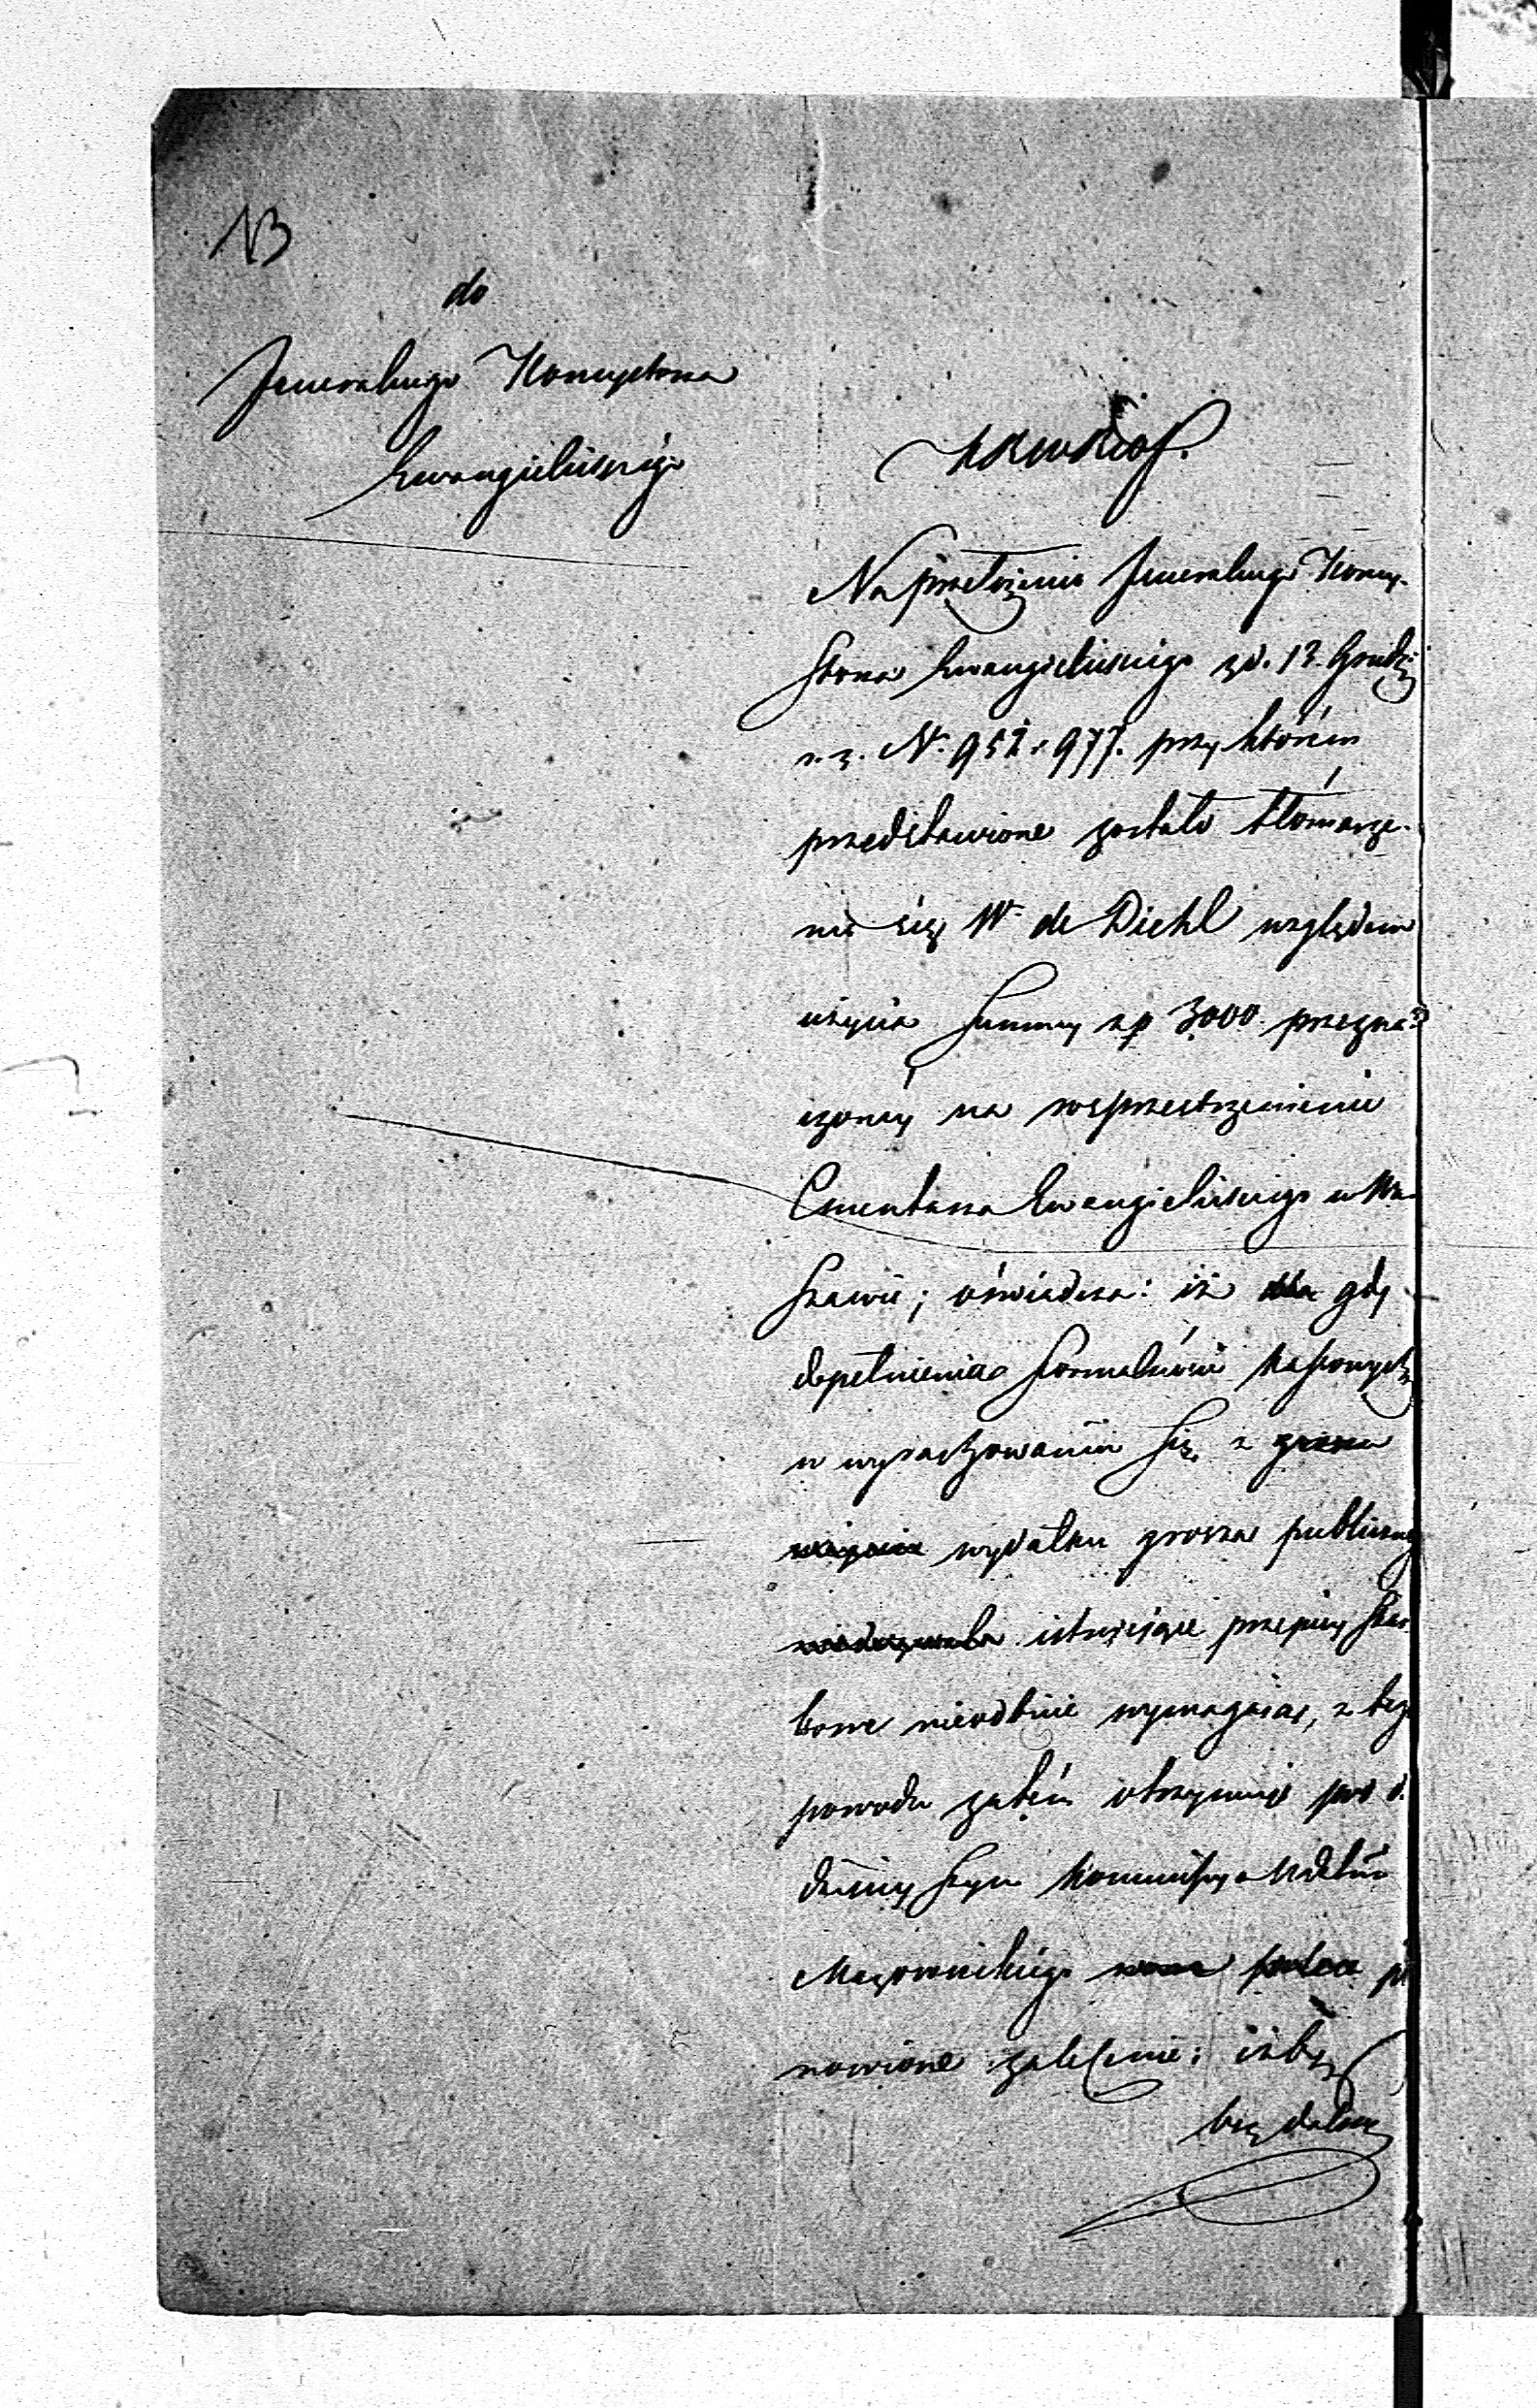 NB
do
Jeneralnego Konsystorza
Ewangelickiego
Na przełożenie Jeneralnego Konsy-
storza Ewangelickiego z d. 12. Grudz.
r. z. N. 952 i 977. przy którém
przedstawione zostało tłómacze-
nie się W. de Diehl względem
użycia Summy zp 3000 przezna-
czonéy na rosprzestrzenienie
Cmentarza Ewangelickiego w War-
szawie; oświadcza: iż gdy
dopełnienia formalności kassowych
w wyrachowaniu się z
wydatku grosza publiczneg
istnieiące przepisy skar-
bowe nieodbicie wymagaią, z tego
powodu zatém otrzymuie pod d.
dzisieyszym Kommissya Wdztwa
Mazowieckiego po
nowione zalecenie: iżby
bez dalszey